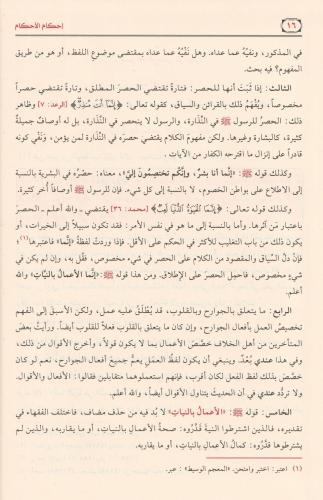 ١٦
إحكام الأحكام
في المذكور، ونفيُه عما عداه. وهل نَفْيُه عما عداه بمقتضى موضوع اللفظ، أو هو من طريق
المفهوم؟ فيه بحث.
الثالث: إذا ثَبَتَ أنها للحصر: فتارةً تقتضي الحصرَ المطلق، وتارةً تقتضي حصراً
مخصوصاً، ويُفْهَمُ ذلك بالقرائنِ والسياق، كقوله تعالى: ﴿إِنَّمَا أَنتَ مُنذِرٌ﴾ [الرعد: ٧] وظاهر
ذلك: الحصرُ للرسولِ ﷺ في النِّذَارة، والرسولُ لا ينحصر في النِّذَارة، بل له أوصافٌ جميلةٌ
كثيرة، كالبشارة وغيرها. ولكن مفهومَ الكلام يقتضي حصرَه في النِّذَارة لمن يؤمن، ونَفْيَ كونه
قادراً على إنزال ما اقترحه الكفار من الآيات.
وكذلك قوله ﷺ: «إنَّما أنا بشرٌ، وإنَّكم تختصِمُونَ إليَّ»، معناه: حصرُه في البشرية بالنسبة
إلى الاطلاع على بواطن الخصوم، لا بالنسبة إلى كل شيء، فإن للرسول ﷺ أوصافاً أُخر كثيرة.
وكذلك قوله تعالى: ﴿إِنَّمَا الْحَيَاةُ الدُّنْيَا لَعِبٌ﴾ [محمد: ٣٦] يقتضي ـ والله أعلم ـ الحصرَ
باعتبار مَن آثرها. وأما بالنسبة إلى ما هو في نفس الأمر: فقد تكون سبيلاً إلى الخيرات، أو
يكون ذلك من باب التغليب للأكثر في الحكم على الأقل. فإذا وردتْ لفظةُ «إنَّما» فاعتبرها(١)
فإنْ دلَّ السِّياق والمقصود من الكلام على الحصر في شيءٍ مخصوص، فقُل به، وإن لم يكن في
شيءٍ مخصوص، فاحملِ الحصرَ على الإطلاق. ومن هذا قوله ﷺ: «إنَّما الأعمالُ بالنيَّات» والله
أعلم.
الرابع: ما يتعلق بالجوارح وبالقلوب، قد يُطْلَق عليه عمل، ولكن الأسبقَ إلى الفهم
تخصيصُ العمل بأفعال الجوارح، وإن كان ما يتعلق بالقلوب فعلاً للقلوب أيضاً. ورأيتُ بعضَ
المتأخرين من أهل الخلاف خصَّصَ الأعمال بما لا يكون قولاً، وأخرج الأقوالَ من ذلك،
وفي هذا عندي بُعدٌ. وينبغي أن يكونَ لفظُ العملِ يعمُّ جميعَ أفعال الجوارح، نعم لو كان
خصَّصَ بذلك لفظَ الفعل لكان أقرب، فإنهم استعملوهما متقابلين فقالوا: الأفعال والأقوال.
ولا تردُّدَ عندي في أن الحديث يتناول الأقوالَ أيضاً، والله أعلم.
الخامس: قوله ﷺ: «الأعمالُ بالنيات» لا بُد فيه من حذف مضاف، فاختلف الفقهاء في
تقديره، فالذين اشترطوا النيةَ قدَّروه: صحةُ الأعمال بالنيات، أو ما يقاربه، والذين لم
يشترطوها قدَّروه: كمالُ الأعمال بالنيات، أو ما يقاربه.
(١) اعتبر: اختبر وامتحن. «المعجم الوسيط»: عبر.